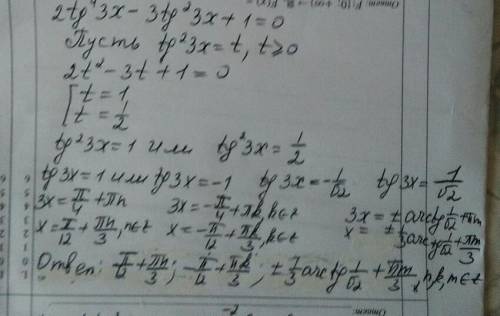 2tg⁴3x - 3tg²3x + 1 = 0
Пусть tg²3x = t, t ≥ 0
2t² - 3t + 1 = 0
[ t = 1
[ t = 1/2
tg²3x = 1 или tg²3x = 1/2
tg3x = 1 или tg3x = -1 tg3x = -1/√2 tg3x = 1/√2
3x = π/4 + πn 3x = -π/4 + πk, k∈z 3x = ± arctg 1/√2 + πm
x = π/12 + πn/3, n∈z x = -π/12 + πk/3, k∈z x = ± 1/3 arctg 1/√2 + πm/3
Ответ: π/12 + πn/3; -π/12 + πk/3; ± 1/3 arctg 1/√2 + πm/3, n,k,m∈z
-2
Ответ: